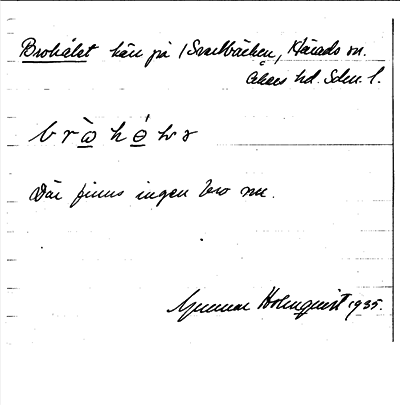 Brohålet här på Svartbäcken, Härads sn.
Åkers hd. Sdm. l.
b r ò h é l ɜ
Där finns ingen bro nu.
Gunnar Holmquist 1935.